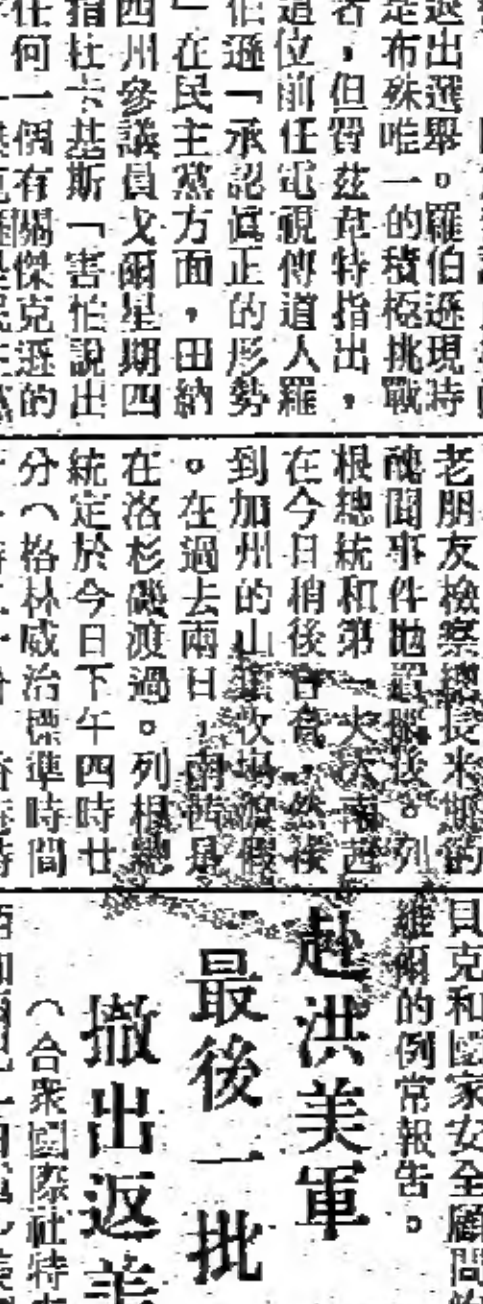 退出選舉。羅伯遜現時
定布殊唯一的積極挑戰
者,但賀茲韋特指出,
道位前任電視傳道人羅
伯遜「承認眞正的形勢
」在民主黨方面,田納
四州參議員戈爾星期四
指杜卡基斯「害怕說出
任何一個有關傑克遜的
老朋友檢察總長米斯的
醜聞事件拋諸腦後。列
根總統和第一夫人南茜
在今日稍後會合,然後
到加州的山牧場渡假
。在過去兩日,南茜是
在洛杉磯渡過。列根總
統定於今日下午四時廿
分(格林威治標準時間
貝克和國家安全顧問
維爾的例常報告。
赴洪美軍
最後一批
撤出返美
(合衆國際社特